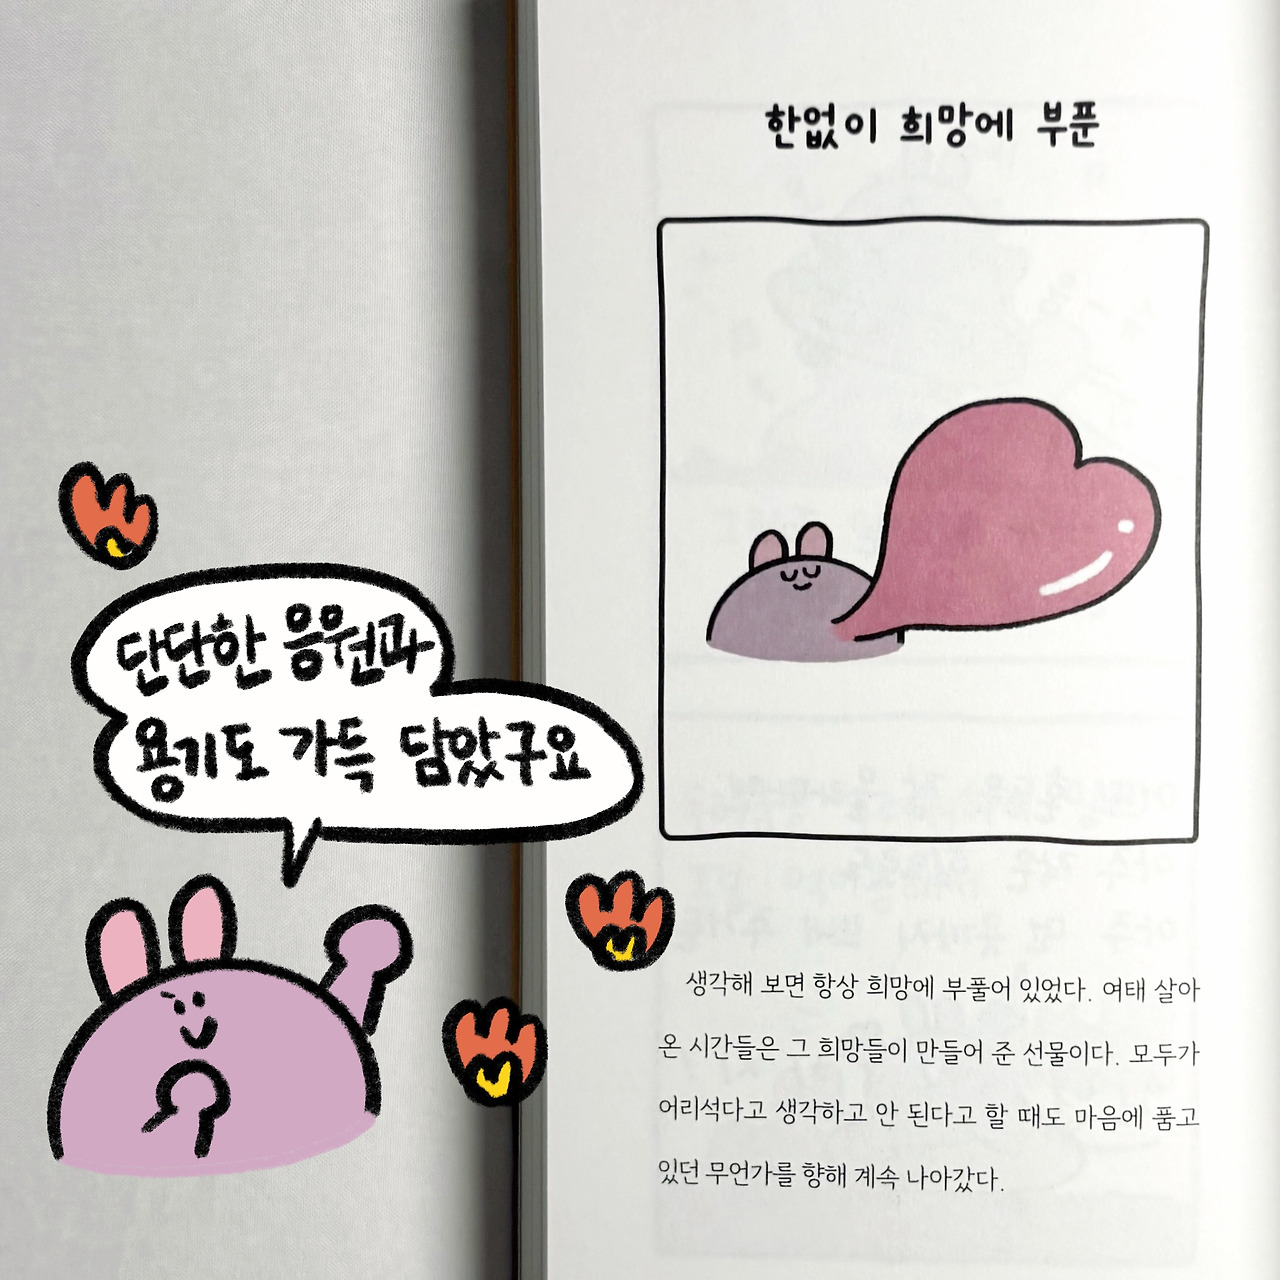 한없이 희망에 부푼
단단한 응원과
용기도 가득 담았구요
생각해 보면 항상 희망에 부풀어 있었다. 여태 살아
온 시간들은 그 희망들이 만들어 준 선물이다. 모두가
어리석다고 생각하고 안 된다고 할 때도 마음에 품고
있던 무언가를 향해 계속 나아갔다.